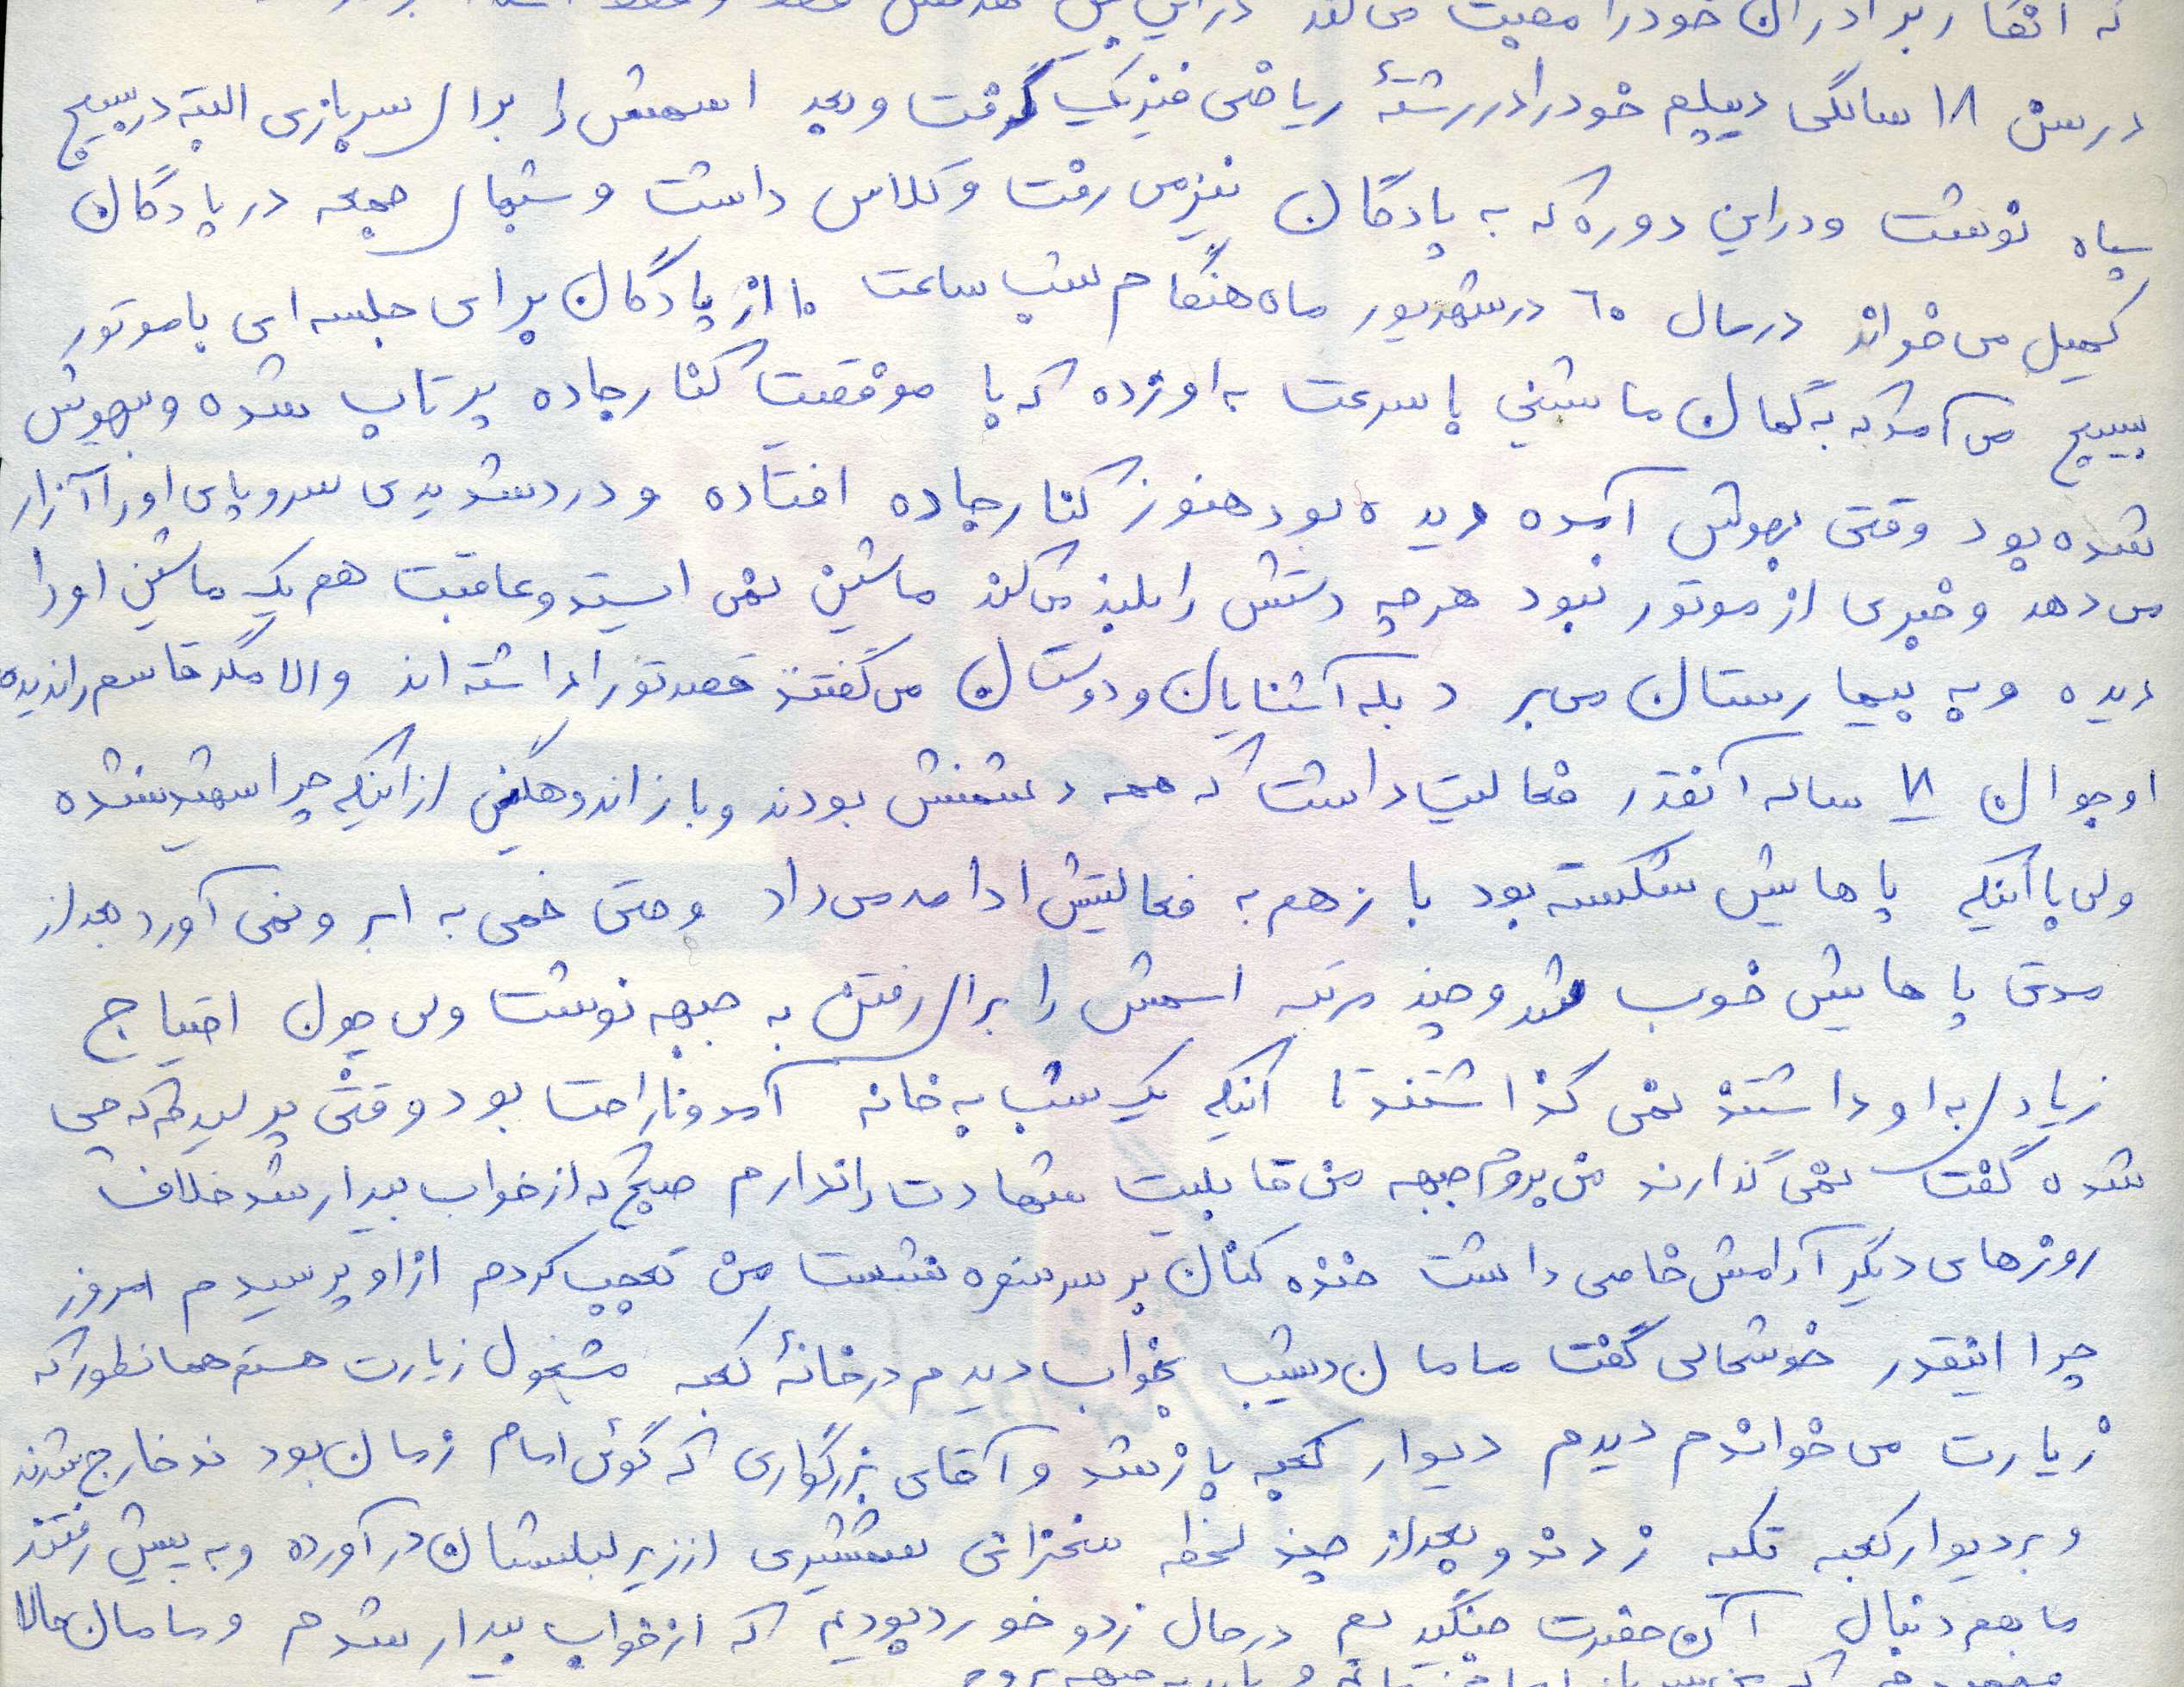 که انگار برادران خود را
در سن ۱۸ سالگی دیپلم خود را در رشتهٔ ریاضی فیزیک گرفت و بعد اسمش را برای سربازی البته در بسیج
سپاه نوشت و در این دوره که به پادگان نیز می رفت و کلاس داشت و شبهای جمعه در پادگان
کمیل می خواند در سال ٦٠ در شهریور ماه هنگام شب ساعت ١٠ از پادگان برای جلسه ای با موتور
بسیج می آمد که به گمان ماشینی با سرعت به او زده که با موفقیت کنار جاده پرتاب شده و بیهوش
شده بود وقتی بهوش آمده دیده بود هنوز کنار جاده افتاده و درد شدیدی سر و پای او را آزار
می دهد و خبری از موتور نبود هر چه دستش را بلند می کند ماشین نمی ایستد و عاقبت هم یک ماشین او را
دیده و به بیمارستان می برد بله آشنایان و دوستان می گفتند قصد تو را داشته اند والا مگر قاسم را ندیده
او جوان ۱۸ ساله آنقدر فعالیت داشت که همه دشمنش بودند و باز اندوهگین از اینکه چرا شهید نشده
ولی با اینکه پاهایش شکسته بود باز هم به فعالیتش ادامه می داد و حتی خمی به ابرو نمی آورد بعد از
مدتی پاهایش خوب شد و چند مرتبه اسمش را برای رفتن به جبهه نوشت ولی چون احتیاج
زیادی به او داشتند نمی گذاشتند تا اینکه یک شب به خانه آمد و ناراحت بود وقتی پرسیدم که چی
شده گفت نمی گذارند من بروم جبهه من قابلیت شهادت را ندارم صبح که از خواب بیدار شد خلاف
روزهای دیگر آرامش خاصی داشت خنده کنان بر سر سفره نشست من تعجب کردم از او پرسیدم امروز
چرا اینقدر خوشحالی گفت مامان دیشب بخواب دیدم در خانهٔ کعبه مشغول زیارت هستم همانطور که
زیارت می خواندم دیدم دیوار کعبه باز شد و آقای بزرگواری که گوئی امام زمان بود خارج شدند
و بر دیوار کعبه تکیه زدند و بعد از چند لحظه سخنرانی شمشیری از زیر لباسشان در آورده و به پیش رفتند
ما بهم دنبال آن حضرت جنگیدیم در حال زد و خورد بودیم که از خواب بیدار شدم و مامان حالا